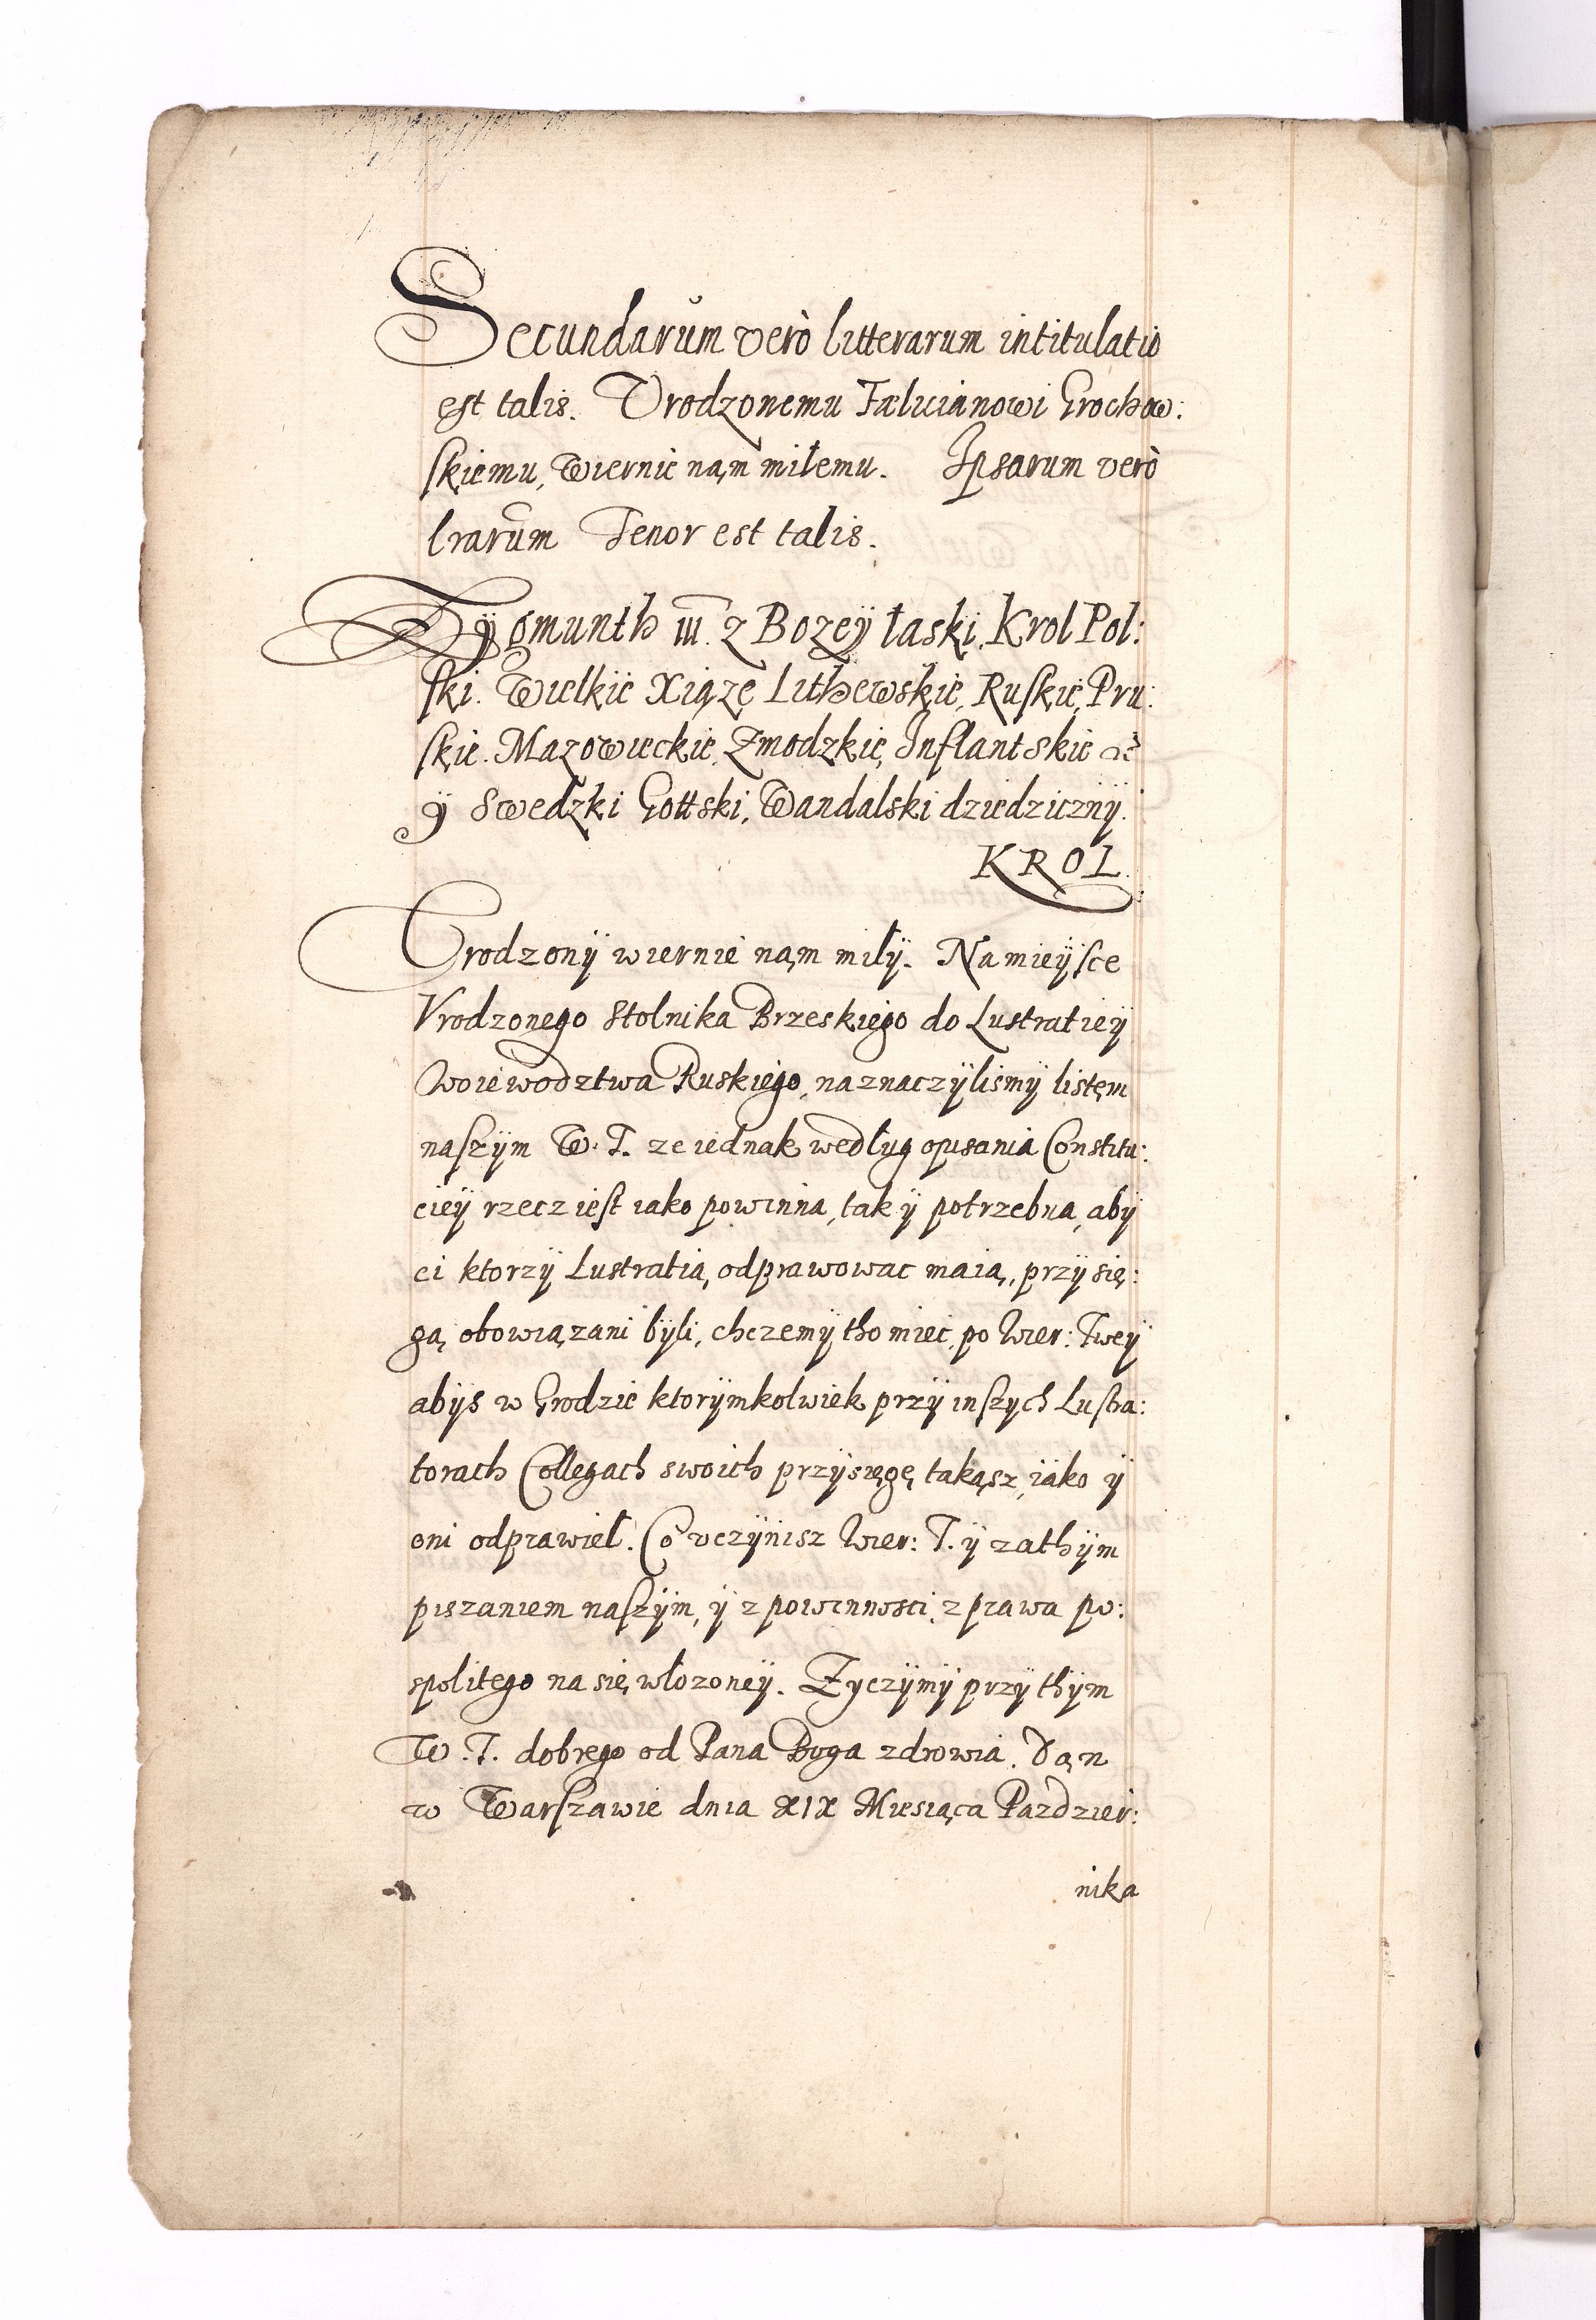 Secundarum verò litterarum intitulatio
est talis. Vrodzonemu Fælicianowi Grochow:
skiemu, Wiernie nąm miłemu. Ipsarum verò
lrarum Tenor est talis.
Zÿgmunth III. z Bozeÿ łaski, Krol Pol:
ski. Wielkie Xiązę Lithewskie, Ruskie, Pru:
skie. Mazowieckie, Zmodzkie, Inflantskie
ÿ Swedzki Gottski, Wandalski dziedzicznÿ.
KROL.
Urodzonÿ wiernie nąm miłÿ. Na mieÿsce
Vrodzonego Stolnika Brzeskiego do Lustratieÿ
Woiewodztwa Ruskiego, naznaczÿlismÿ listęm
naszÿm W. T. ze iednak według opisania Constitu:
cieÿ rzecz iest iako powinna, tak ÿ potrzebna, abÿ
ci ktorzÿ Lustratią odprawowac maią, przÿsię:
gą obowiązani bÿli, chczemÿ tho miec po Wier: Tweÿ
abÿs w Grodzie ktorÿmkolwiek przÿ inszych Lustra:
torach Collegach swoich przÿsięgę takąsz, iako ÿ
oni odprawieł. Co vczÿnisz Wier: T. ÿ zathÿm
piszaniem naszÿm, ÿ z powinnosci, z prawa po:
spolitego na się włozoneÿ. Zyczÿmÿ przÿ thÿm
W. T. dobrego od Pana Boga zdrowia. Dąn
w Warszawie dnia XIX Miesiąca Pazdzier:
nika